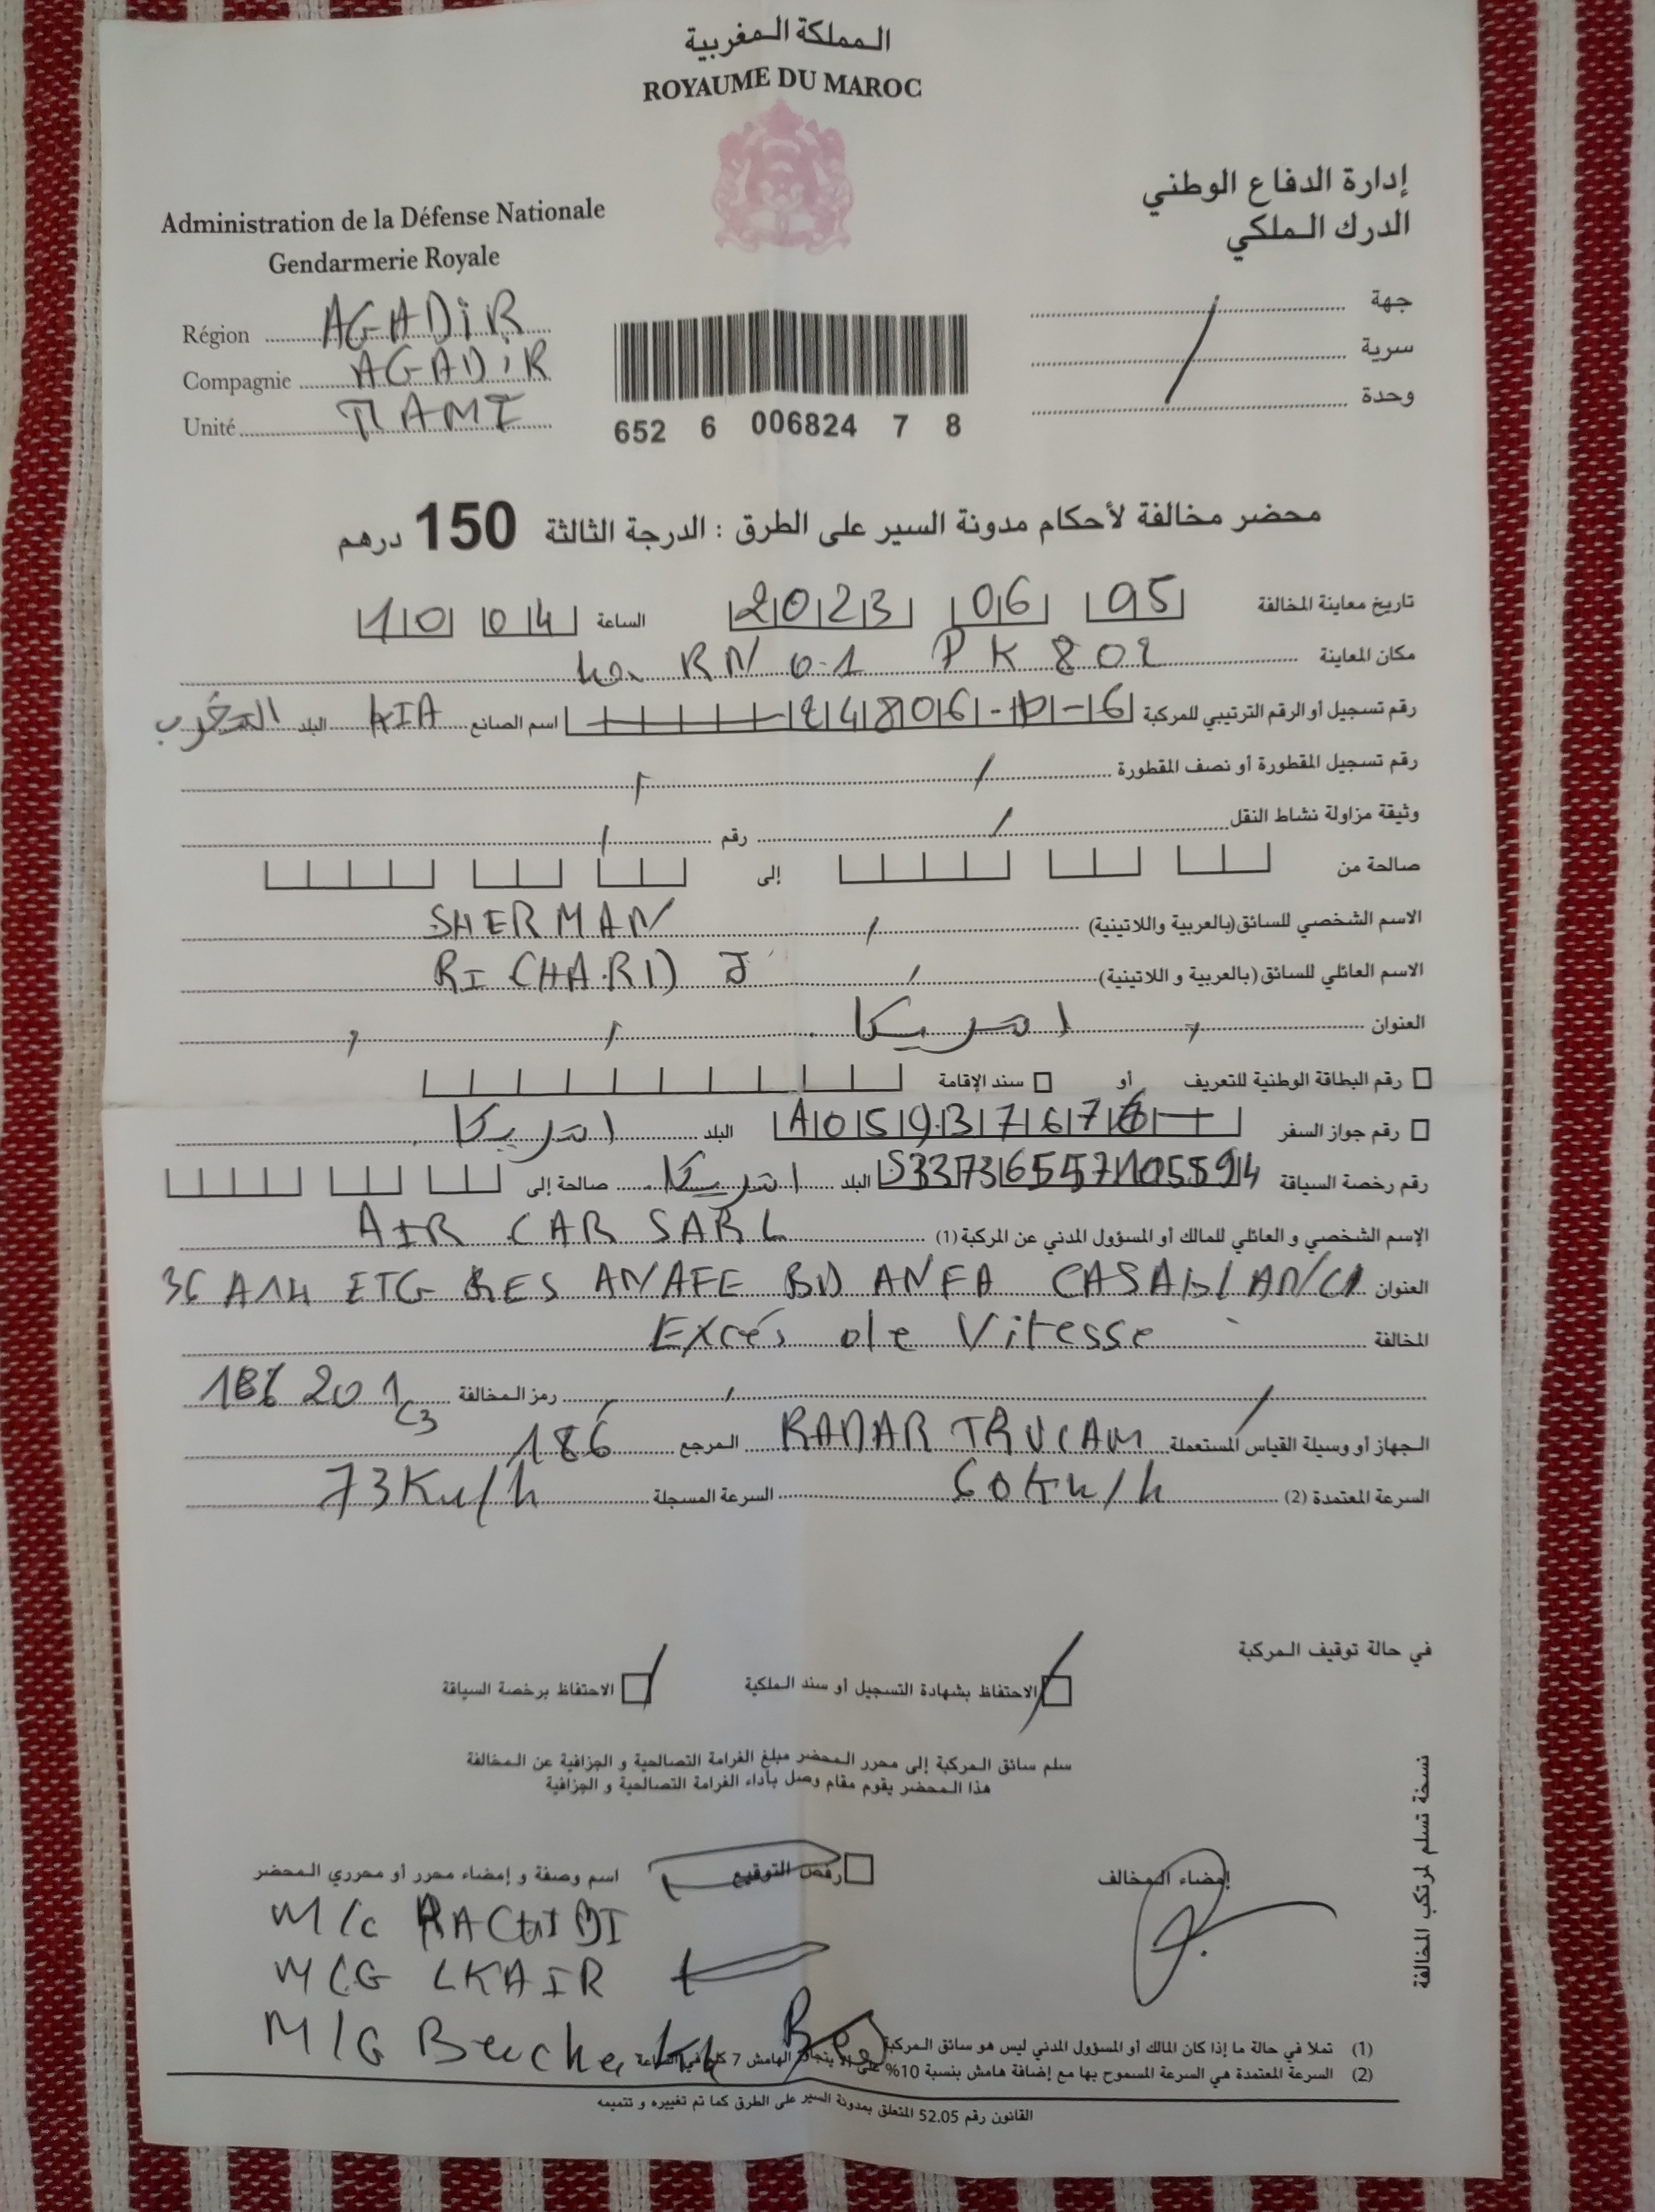 المملكة المغربية
ROYAUME DU MAROC
Administration de la Défense Nationale
Gendarmerie Royale
إدارة الدفاع الوطني
الدرك الملكي
Région AGADIR
Compagnie AGADIR
Unité
جهة
سرية
وحدة
652 6 006824 7 8
محضر مخالفة لأحكام مدونة السير على الطرق : الدرجة الثالثة 150 درهم
تاريخ معاينة المخالفة 05 06 2023 الساعة 10 04
مكان المعاينة RN 01 PK 802
رقم تسجيل أو الرقم الترتيبي للمركبة 24806 - - 6 اسم الصانع KIA البلد المغرب
رقم تسجيل المقطورة أو نصف المقطورة
وثيقة مزاولة نشاط النقل رقم
صالحة من إلى
الاسم الشخصي للسائق (بالعربية واللاتينية) SHERMAN
الاسم العائلي للسائق (بالعربية و اللاتينية) RICHARD J
العنوان امريكا
رقم البطاقة الوطنية للتعريف أو سند الإقامة
رقم جواز السفر A05937676 البلد امريكا
رقم رخصة السياقة البلد امريكا صالحة إلى
الإسم الشخصي و العائلي للمالك أو المسؤول المدني عن المركبة (1) AIR CAR SARL
العنوان 36 A14 ETG RES ANAFE BD ANFA CASABLANCA
المخالفة Excés de Vitesse
رمز المخالفة 201
الجهاز أو وسيلة القياس المستعملة RADAR TRUCAM المرجع 186
السرعة المعتمدة (2) 60 Km/h السرعة المسجلة 73 Km/h
في حالة توقيف المركبة
الاحتفاظ بشهادة التسجيل أو سند الملكية الاحتفاظ برخصة السياقة
سلم سائق المركبة إلى محرر المحضر مبلغ الغرامة التصالحية و الجزافية عن المخالفة
هذا المحضر يقوم مقام وصل بأداء الغرامة التصالحية و الجزافية
نسخة تسلم لمرتكب المخالفة
إمضاء المخالف رفض التوقيع اسم وصفة و إمضاء محرر أو محرري المحضر
M/C RACHIDI
LKAIR
M/G
(1) تملأ في حالة ما إذا كان المالك أو المسؤول المدني ليس هو سائق المركبة
(2) السرعة المعتمدة هي السرعة المسموح بها مع إضافة هامش بنسبة 10% الهامش 7
القانون رقم 52.05 المتعلق بمدونة السير على الطرق كما تم تغييره و تتميمه